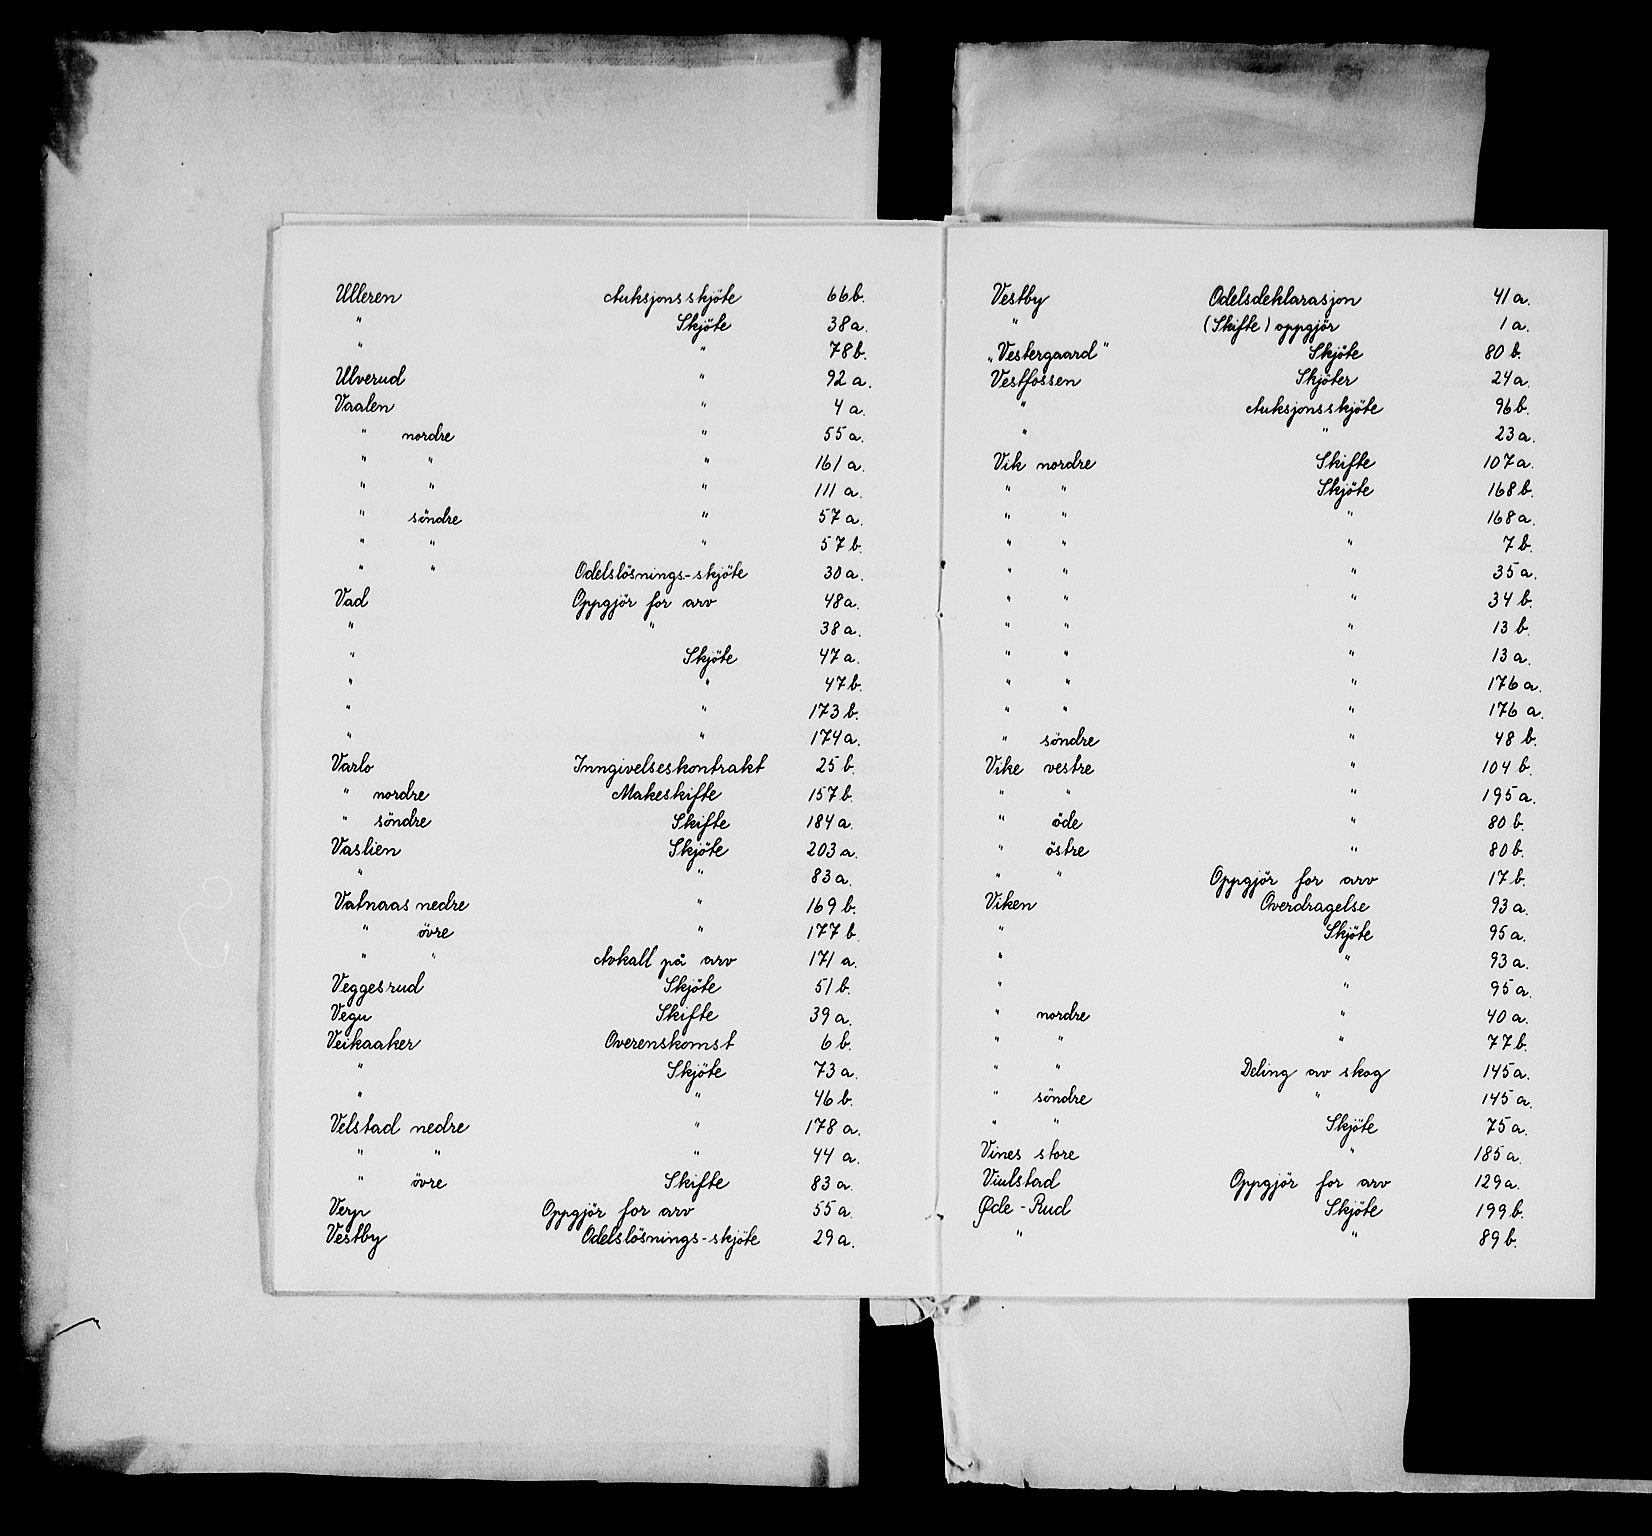 Ulleren Auksjonsskjöte 66b.
" Skjöte 38a.
" " 78b.
Ulverud " 92a.
Vaalen " 4a.
" nordre " 55a.
" " " 161a.
" " " 111a.
" söndre " 57a.
" " " 57b.
" " Odelslösnings-skjöte 30a.
Vad Oppgjör for arv 48a.
" " 38a.
" Skjöte 47a.
" " 47b.
" " 173b.
" " 174a.
Varlo Inngivelseskontrakt 25b.
" nordre Makeskifte 157b.
" söndre Skifte 184a.
Vaslien Skjöte 203a.
" " 83a.
Vatnaas nedre " 169b.
" övre " 177b.
" " Avkall på arv 171a.
Veggesrud Skjöte 51b.
Vegu Skifte 39a.
Veikaaker Overenskomst 6b.
" Skjöte 73a.
" " 46b.
Velstad nedre " 178a.
" " " 44a.
" övre Skifte 83a.
Verp Oppgjör for arv 55a.
Vestby Odelslösnings-skjöte 29a.
Vestby Odelsdeklarasjon 41a.
" (Skifte) oppgjör 1a.
„Vestergaard" Skjöte 80b.
Vestfossen Skjöter 24a.
" Auksjonsskjöte 96b.
" " 23a.
Vik nordre Skifte 107a.
" " Skjöte 168b.
" " " 168a.
" " " 7b.
" " " 35a.
" " " 34b.
" " " 13b.
" " " 13a.
" " " 176a.
" " " 176a.
" söndre " 48b.
Vike vestre " 104b.
" " " 195a.
" öde " 80b.
" östre " 80b.
" " Oppgjör for arv 17b.
Viken Overdragelse 93a.
" Skjöte 95a.
" " 93a.
" " 95a.
" nordre " 40a.
" " " 77b.
" " Deling av skog 145a.
" söndre " 145a.
" " Skjöte 75a.
Vines store " 185a.
Viulstad Oppgjör for arv 129a.
Øde-Rud Skjöte 199b.
" " 89b.